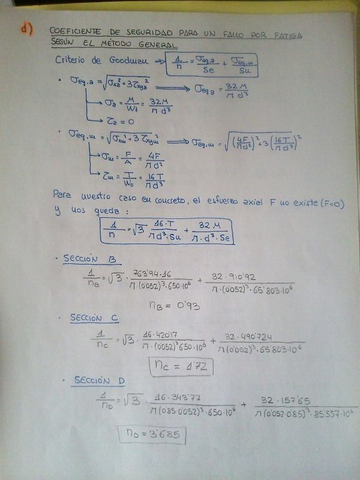 d) COEFICIENTE DE SEGURIDAD PARA UN FALLO POR FATIGA
SEGÚN EL MÉTODO GENERAL
Criterio de Goodman → 1/n = σeq,a/Se + σeq,m/Su
• σeq,a = √(σa² + 3τxya²) → σeq,a = 32M/πd³
→ σa = M/Wf = 32M/πd³
→ τa = 0
• σeq,m = √(σm² + 3τxym²) → σeq,m = √((4F/πd²)² + 3(16T/πd³)²)
→ σm = F/A = 4F/πd²
→ τm = T/W0 = 16T/πd³
Para nuestro caso en concreto, el esfuerzo axial F no existe (F=0)
y nos queda:
1/n = √3 · 16·T/π·d³·Su + 32·M/π·d³·Se
• SECCIÓN B
1/nB = √3 · 763'94·16/π·(0'052)³·650·10⁶ + 32·910'92/π·(0'052)³·65'803·10⁶
nB = 0'93
• SECCIÓN C
1/nC = √3 · 16·420'17/π·(0'052)³·650·10⁶ + 32·490'724/π(0'052)³·65'803·10⁶
nC = 1'72
• SECCIÓN D
1/nD = √3 · 16·343'77/π(0'85·0'052)³·650·10⁶ + 32·157'65/π(0'052·0'85)³·85'537·10⁶
nD = 3'685